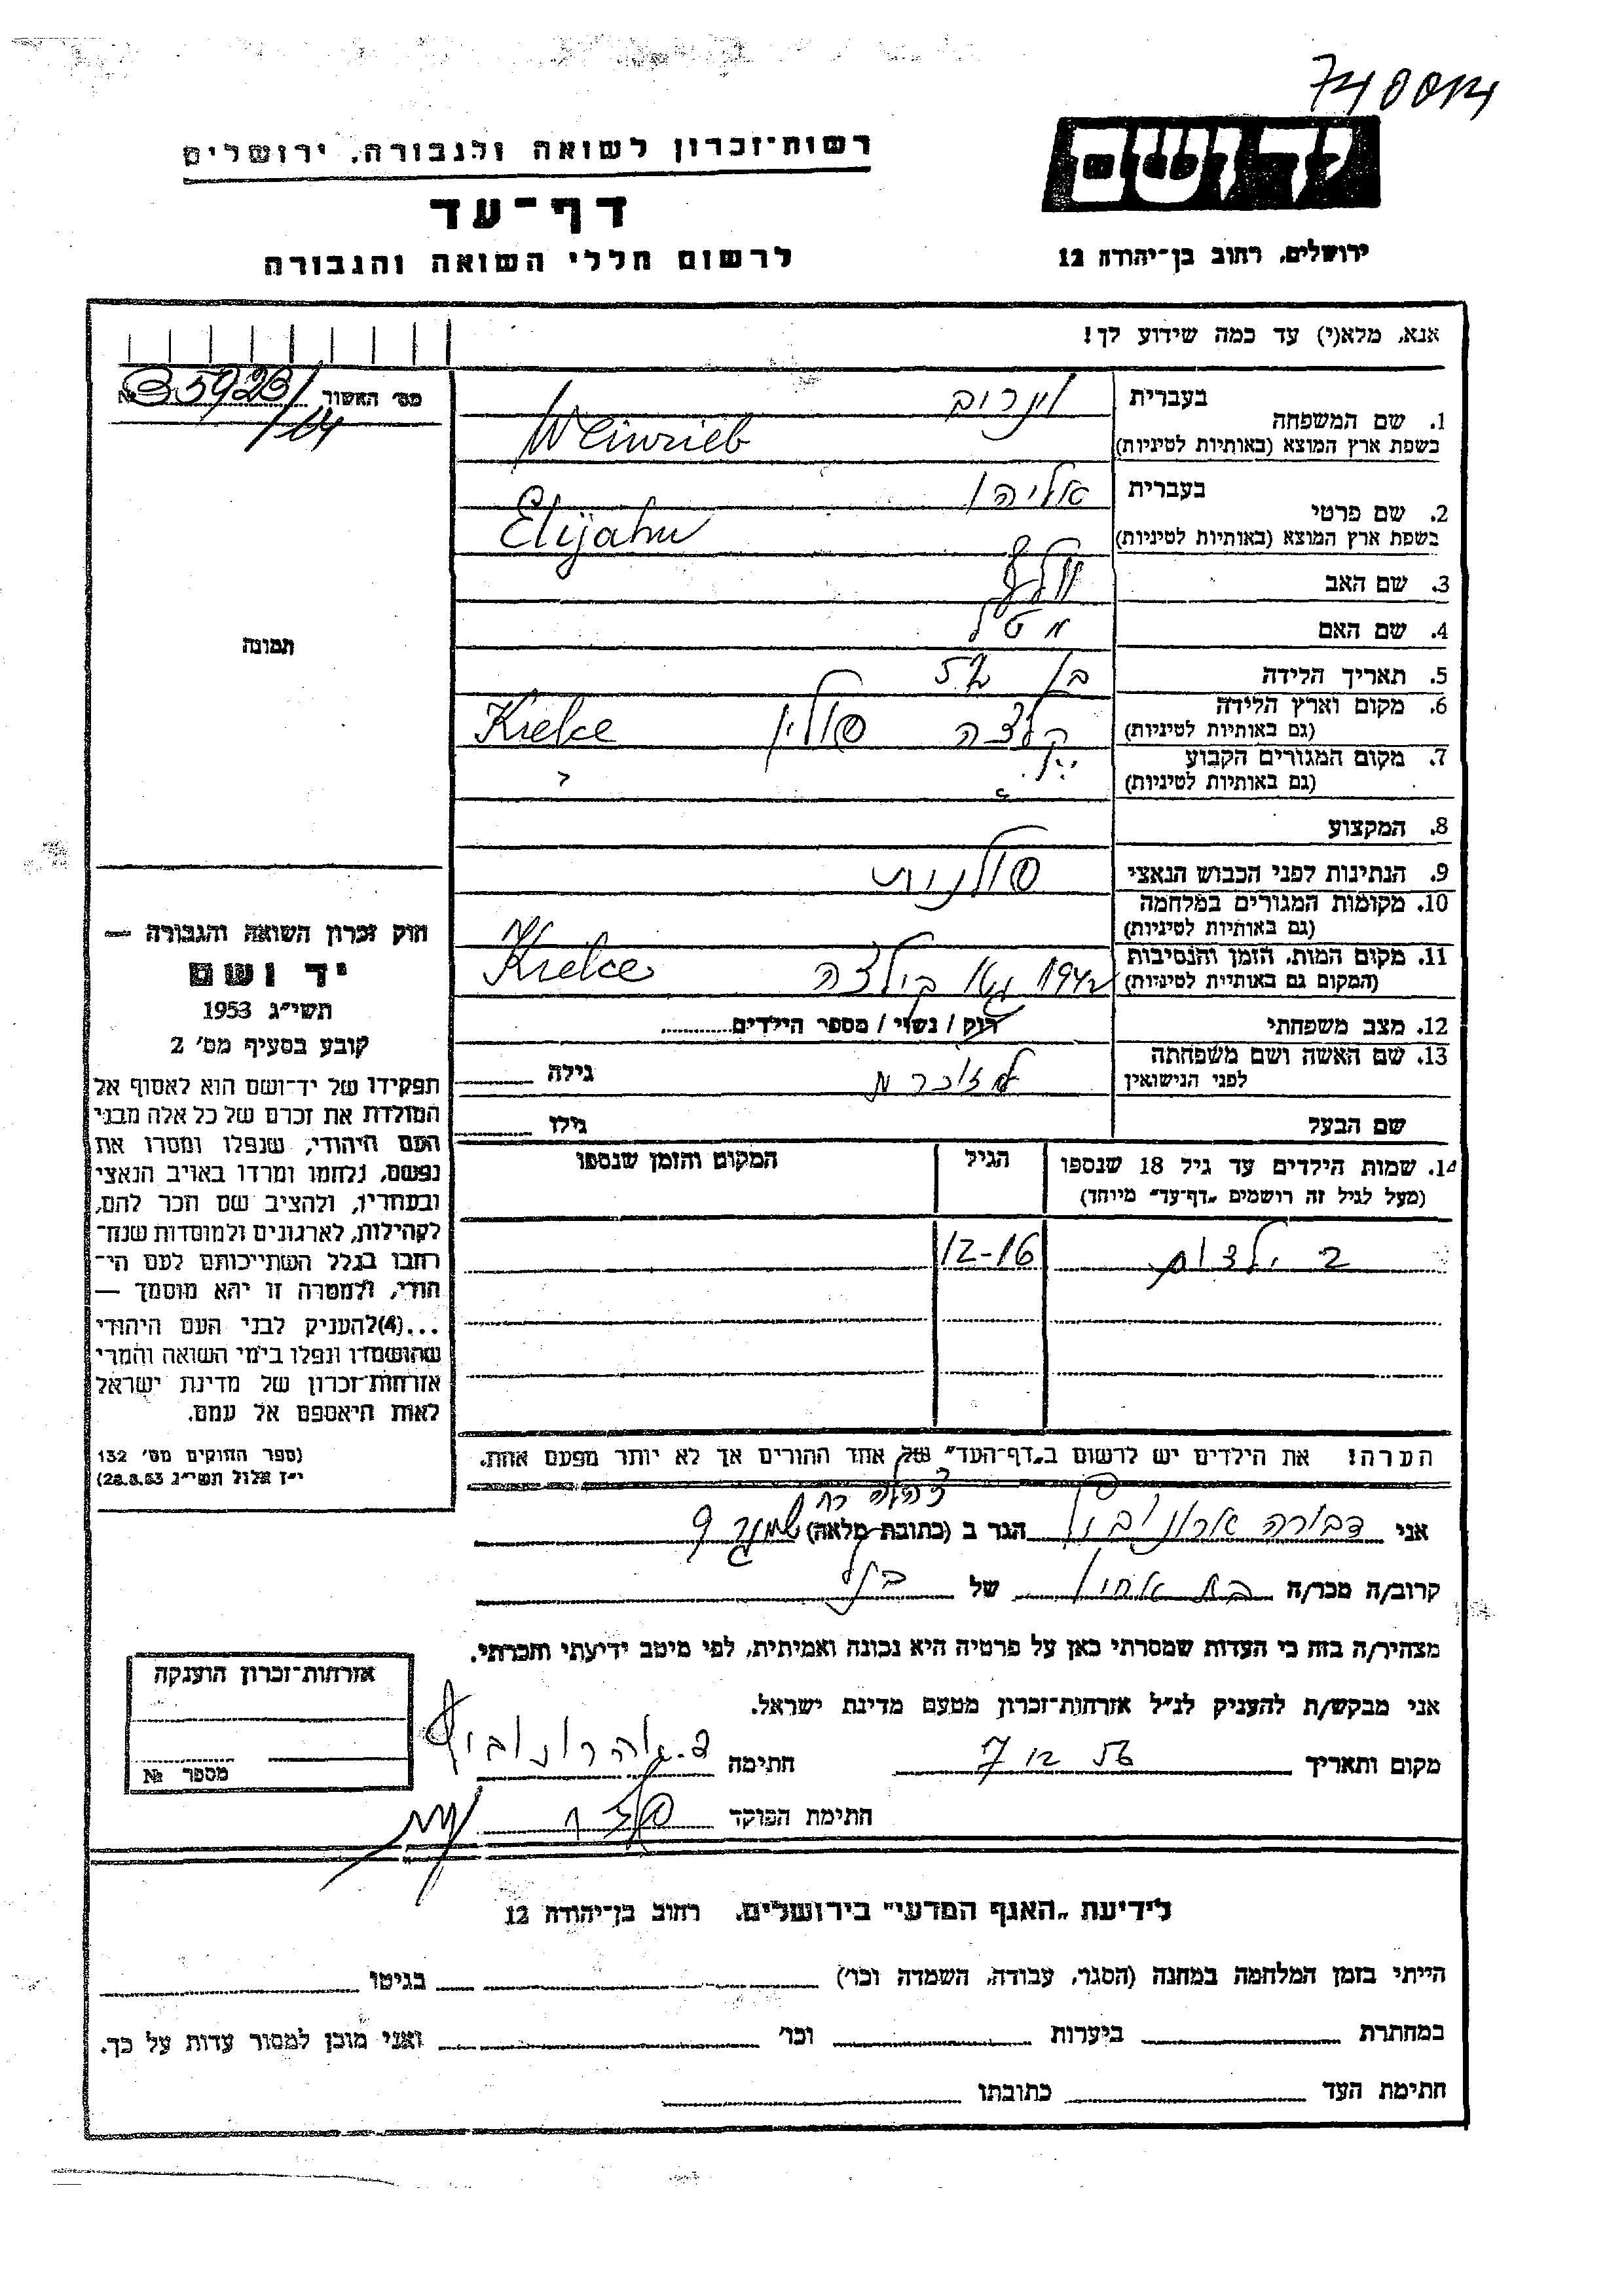 740014
רשות־זכרון לשואה ולגבורה. ירושלים
יד ושם
דף־עד
לרשום חללי השואה והגבורה
ירושלים. רחוב בן־יהודה 12
אנא, מלא(י) עד כמה שידוע לך!
מס׳ האשור № 35923/14
בעברית
1. שם המשפחה
בשפת ארץ המוצא (באותיות לטיניות) Weinrieb
בעברית אליהו
2. שם פרטי
בשפת ארץ המוצא (באותיות לטיניות) Elijahu
3. שם האב
4. שם האם
תמונה
5. תאריך הלידה בן
6. מקום וארץ הלידה
(גם באותיות לטיניות) קלצה פולין Kielce
7. מקום המגורים הקבוע
(גם באותיות לטיניות)
8. המקצוע
9. הנתינות לפני הכבוש הנאצי פולנית
10. מקומות המגורים במלחמה
(גם באותיות לטיניות)
11. מקום המות. הזמן והנסיבות
(המקום גם באותיית לטיניות) 1942 Kielce
12. מצב משפחתי רוק / נשוי / מספר הילדים............
13. שם האשה ושם משפחתה
לפני הנישואין גילה
שם הבעל גילו
14. שמות הילדים עד גיל 18 שנספו הגיל המקום והזמן שנספו
(מעל לגיל זה רושמים „דף־עד״ מיוחד)
2 ילדות 12-16
חוק זכרון השואה והגבורה —
יד ושם
תשי״ג 1953
קובע בסעיף מס׳ 2
תפקידו של יד־ושם הוא לאסוף אל
המולדת את זכרם של כל אלה מבני
העם היהודי, שנפלו ומסרו את
נפשם, נלחמו ומרדו באויב הנאצי
ובעוזריו, ולהציב שם וזכר להם,
לקהילות, לארגונים ולמוסדות שנח־
רחבו בגלל השתייכותם לעם הי־
הודי, ולמטרה זו יהא מוסמך —
...(4)להעניק לבני העם היהודי
שהושמדו ונפלו בימי השואה והמרי
אזרחות־זכרון של מדינת ישראל
לאות היאספם אל עמם.
(ספר החוקים מס׳ 132
י״ז אלול תשי״ג 28.8.53)
הערה: את הילדים יש לרשום ב„דף־העד״ של אחד ההורים אך לא יותר מפעם אחת.
אני דבורה הגר ב (כתובת מלאה) 9
קרוב/ה מכר/ה בת אחיו של
מצהיר/ה בזה כי העדות שמסרתי כאן על פרטיה היא נכונה ואמיתית, לפי מיטב ידיעתי והכרתי.
אני מבקש/ת להעניק לנ״ל אזרחות־זכרון מטעם מדינת ישראל.
מקום ותאריך 7 12 56 חתימה
חתימת הפוקד
אזרחות־זכרון הוענקה
מספר №
לידיעת „האגף המדעי״ בירושלים. רחוב בן־יהודה 12
הייתי בזמן המלחמה במחנה (הסגר, עבודה, השמדה וכו׳) בגיטו
במחתרת ביערות וכו׳ ואני מוכן למסור עדות על כך.
חתימת העד כתובתו